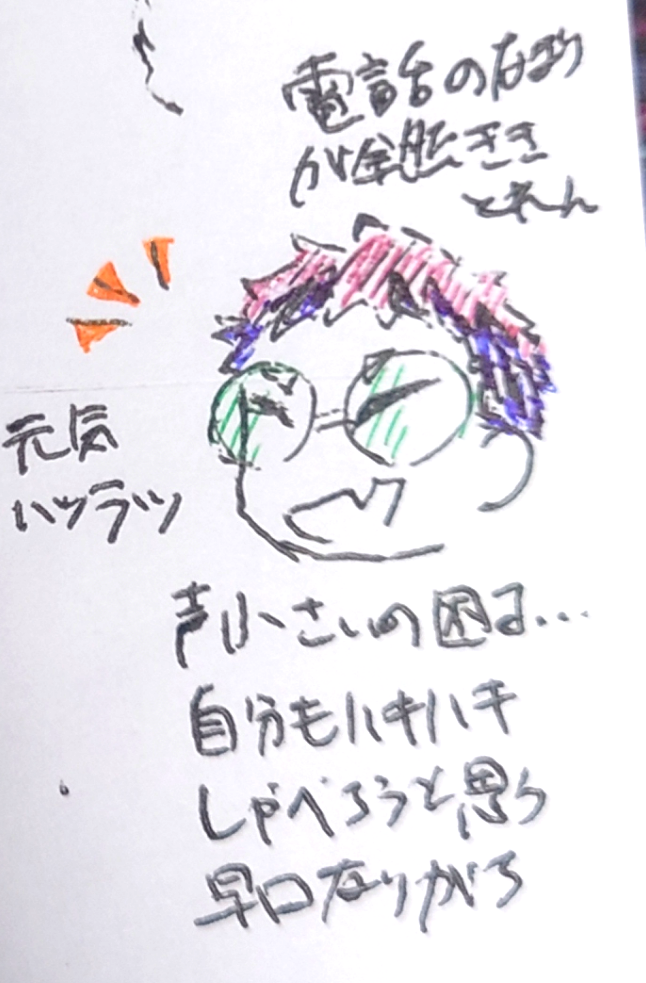 電話のなまり
が全然きき
とれん
元気
ハツラツ
声小さいの困る…
自分もハキハキ
しゃべろうと思う
早口なりがち